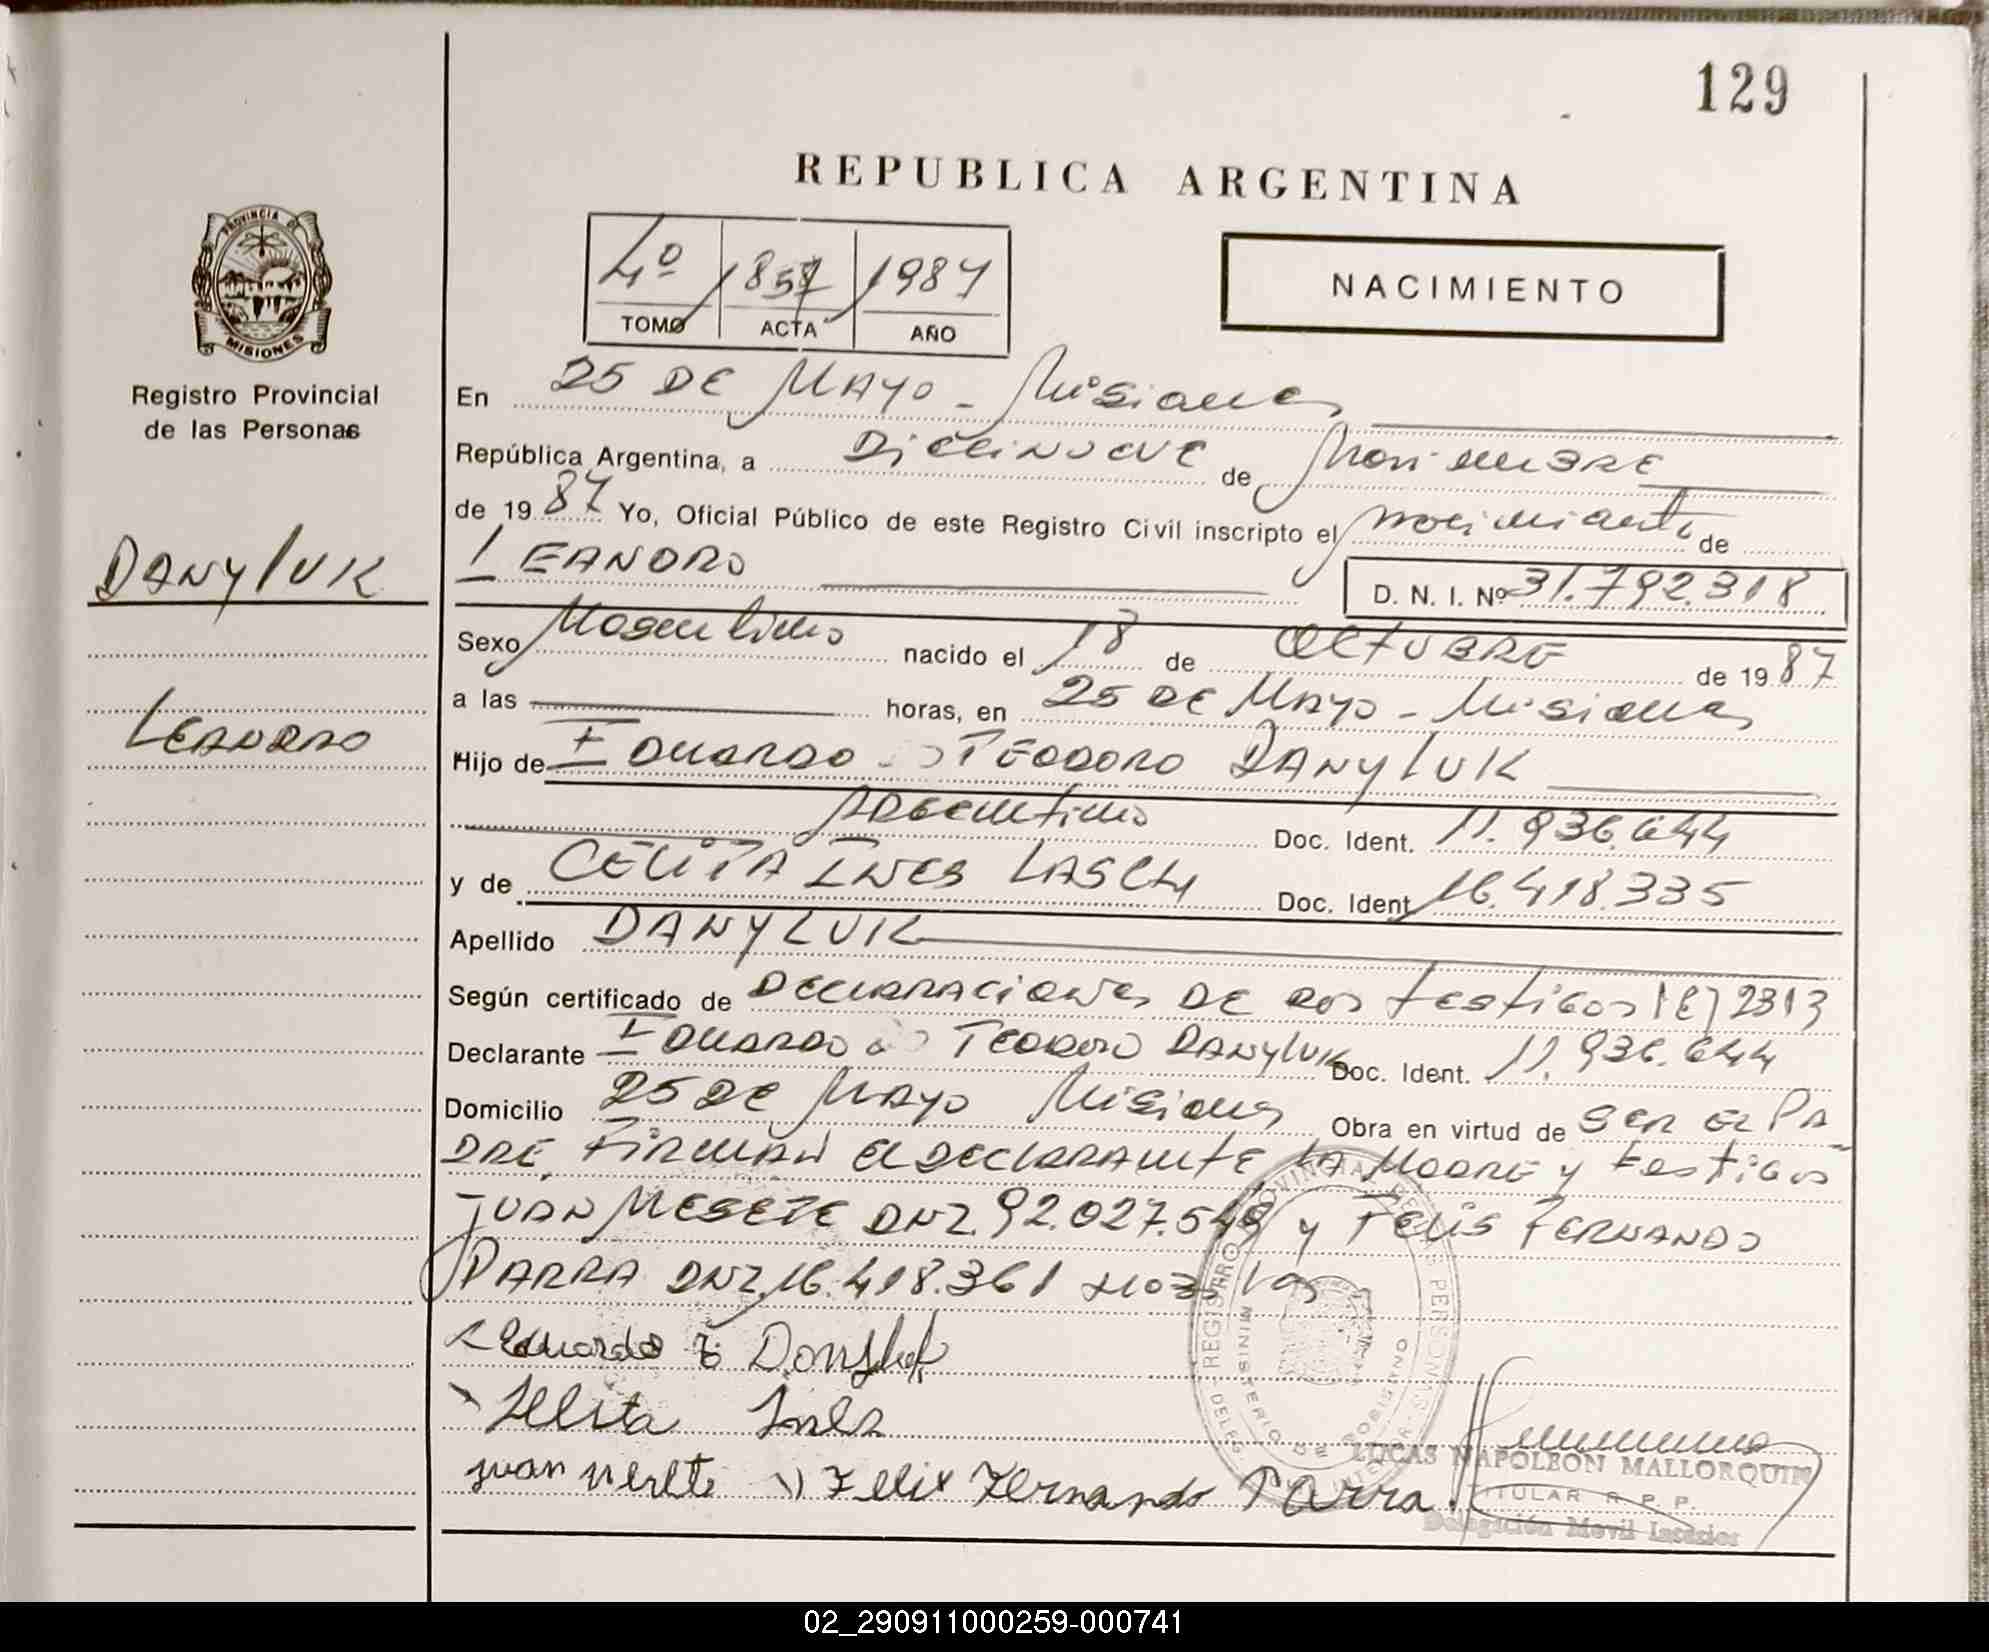 129
REPUBLICA ARGENTINA
4º 1857 1987
TOMO ACTA AÑO
NACIMIENTO
PROVINCIA DE
MISIONES
Registro Provincial
de las Personas
DANYLUK
LEANDRO
En 25 DE MAYO - Misiones
República Argentina, a DiECiNUEVE de NoviEMBRE
de 1987 Yo, Oficial Público de este Registro Civil inscripto el nacimiento de
LEANDRO
D. N. I. Nº 31.792.318
Sexo Masculino nacido el 18 de OCTUBRE de 1987
a las horas, en 25 DE MAYO - Misiones
Hijo de EDUARDO TEODORO DANYLUK
ARGENtino Doc. Ident. 11.936.644
y de CELITA INES LASCH Doc. Ident 16.418.335
Apellido DANYLUK
Según certificado de DECLARACiONES DE DOS testigos 2313
Declarante EDUARDO TEODORO DANYLUK Doc. Ident. 11.936.644
Domicilio 25 DE MAYO Misiones Obra en virtud de SER EL PA-
DRE, FiRMAN El DECLARANtE LA MADRE y testigos
JUAN MESETE DNI. 92.027.548 y FELIS FERNANDO
PARRA DNI. 16.418.361
Eduardo T Danyluk
Selita Ines
juan Felix Fernando Parra
LUCAS NAPOLEON MALLORQUIN
TITULAR R. P. P.
Delegación Movil
02_290911000259-000741